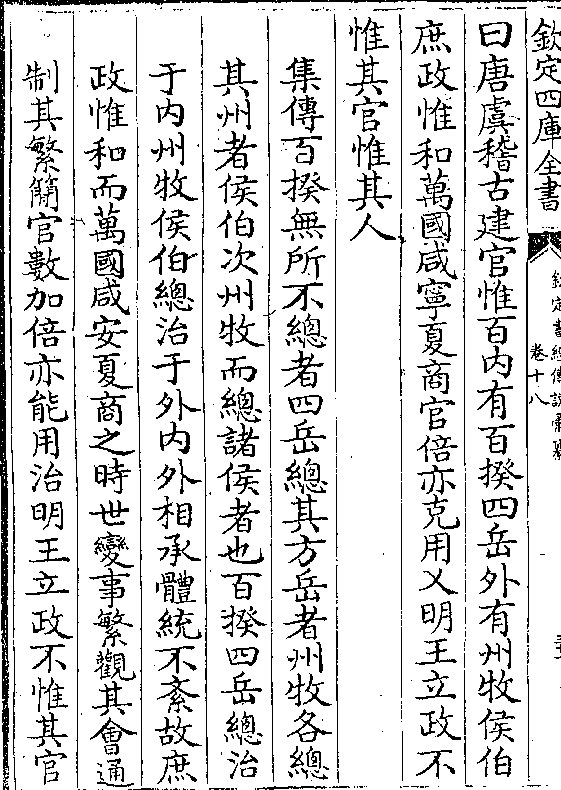 欽定四庫全書
欽定書經傳說彙纂
卷十八
曰唐虞稽古建官惟百内有百揆四岳外有州牧侯伯
庶政惟和萬國咸寧夏商官倍亦克用乂明王立政不
惟其官惟其人
集傳百揆無所不總者四岳總其方岳者州牧各總
其州者侯伯次州牧而總諸侯者也百揆四岳總治
于内州牧侯伯總治于外内外相承體統不紊故庶
政惟和而萬國咸安夏商之時世變事繁觀其會通
制其繁簡官數加倍亦能用治明王立政不惟其官